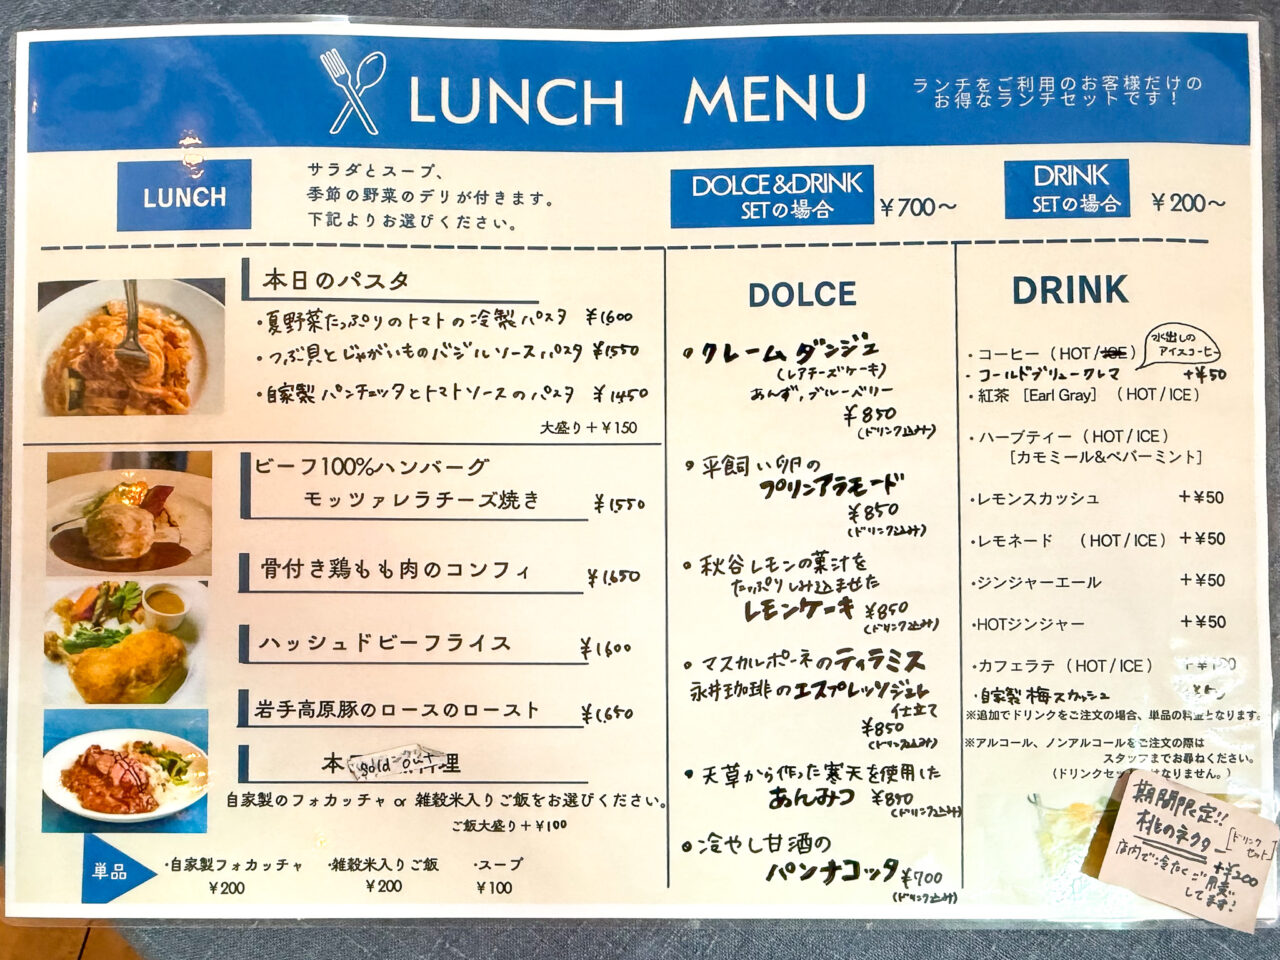 LUNCH MENU
ランチをご利用のお客様だけの
お得なランチセットです！
LUNCH
サラダとスープ、
季節の野菜のデリが付きます。
下記よりお選びください。
DOLCE&DRINK
SETの場合
￥700～
DRINK
SETの場合
￥200～
本日のパスタ
・夏野菜たっぷりのトマトの冷製パスタ ￥1600
・つぶ貝とじゃがいものバジルソースパスタ ￥1550
・自家製パンチェッタとトマトソースのパスタ ￥1450
大盛り＋￥150
ビーフ100%ハンバーグ
モッツァレラチーズ焼き ￥1550
骨付き鶏もも肉のコンフィ ￥1,650
ハッシュドビーフライス ￥1600
岩手高原豚のロースのロースト ￥1,650
本 sold out 料理
自家製のフォカッチャ or 雑穀米入りご飯をお選びください。
ご飯大盛り＋￥100
単品
・自家製フォカッチャ ・雑穀米入りご飯 ・スープ
￥200 ￥200 ￥100
DOLCE
・クレームダンジュ
(レアチーズケーキ)
あんず,ブルーベリー
￥850
(ドリンク込み)
・平飼い卵の
プリンアラモード
￥850
(ドリンク込み)
・秋谷レモンの菓汁を
たっぷりしみ込ませた
レモンケーキ ￥850
(ドリンク込み)
・マスカルポーネのティラミス
永井珈琲のエスプレッソジュレ
仕立て
￥850
(ドリンク込み)
・天草から作った寒天を使用した
あんみつ ￥850
(ドリンク込み)
・冷やし甘酒の
パンナコッタ ￥700
(ドリンク込み)
DRINK
水出しの
アイスコーヒー
・コーヒー（HOT/ICE）
・コールドブリュークレマ +￥50
・紅茶 [Earl Gray] （HOT/ICE）
・ハーブティー（HOT/ICE）
[カモミール&ペパーミント]
・レモンスカッシュ ＋￥50
・レモネード （HOT/ICE） ＋￥50
・ジンジャーエール ＋￥50
・HOTジンジャー ＋￥50
・カフェラテ（HOT/ICE） ＋￥100
・自家製梅スカッシュ
※追加でドリンクをご注文の場合、単品の料金となります。
※アルコール、ノンアルコールをご注文の際は
スタッフまでお尋ねください。
（ドリンクセッ はなりません。）
期間限定!!
桃のネクター
[ドリンクセット]
+￥200
店内で冷たくご用意
してます!